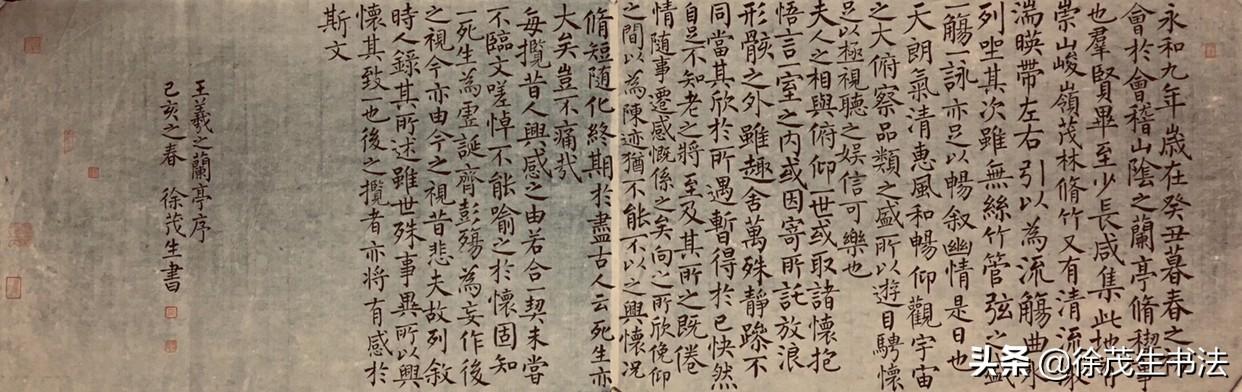 永和九年歲在癸丑暮春之
會於會稽山陰之蘭亭脩禊事
也羣賢畢至少長咸集此地有
崇山峻嶺茂林脩竹又有清流激
湍暎帶左右引以為流觴曲水
列坐其次雖無絲竹管弦之盛
一觴一詠亦足以暢叙幽情是日也
天朗氣清惠風和暢仰觀宇宙
之大俯察品類之盛所以遊目騁懷
足以極視聽之娛信可樂也
夫人之相與俯仰一世或取諸懷抱
悟言室之内或因寄所託放浪
形骸之外雖趣舍萬殊靜躁不
同當其欣於所遇暫得於己快然
自足不知老之將至及其所之既倦
情随事遷感慨係之矣向之所欣俛仰
之間以為陳迹猶不能不以之興懷況
脩短隨化終期於盡古人云死生亦
大矣豈不痛哉
每攬昔人興感之由若合一契未嘗
不臨文嗟悼不能喻之於懷固知
一死生為虛誕齊彭殤為妄作後
之視今亦由今之視昔悲夫故列敘
時人錄其所述雖世殊事異所以興
懷其致一也後之攬者亦將有感於
斯文
王羲之蘭亭序
己亥之春 徐茂生書
头条@徐茂生书法